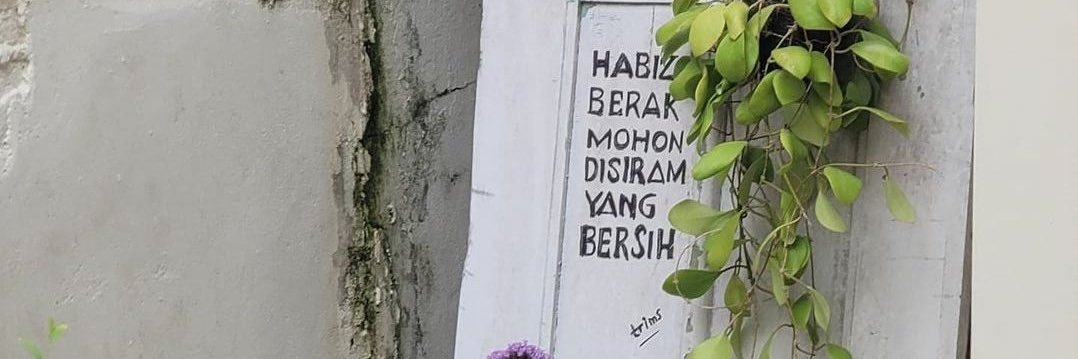 HABIZ
BERAK
MOHON
DISIRAM
YANG
BERSIH
trims